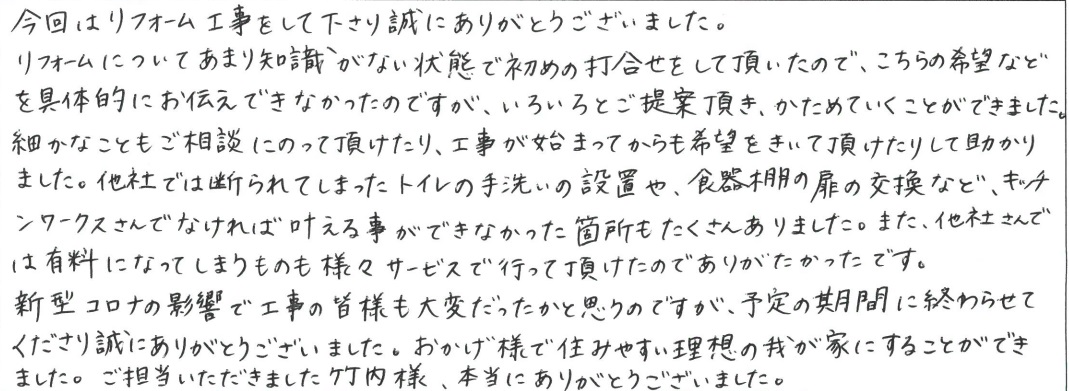 今回はリフォーム工事をして下さり誠にありがとうございました。
リフォームについてあまり知識がない状態で初めの打合せをして頂いたので、こちらの希望など
を具体的にお伝えできなかったのですが、いろいろとご提案頂き、かためていくことができました。
細かなこともご相談にのって頂けたり、工事が始まってからも希望をきいて頂けたりして助かり
ました。他社では断られてしまったトイレの手洗いの設置や、食器棚の扉の交換など、キッチ
ンワークスさんでなければ叶える事ができなかった箇所もたくさんありました。また、他社さんで
は有料になってしまうものも様々サービスで行って頂けたのでありがたかったです。
新型コロナの影響で工事の皆様も大変だったかと思うのですが、予定の期間に終わらせて
くださり誠にありがとうございました。おかげ様で住みやすい理想の我が家にすることができ
ました。ご担当いただきました竹内様、本当にありがとうございました。